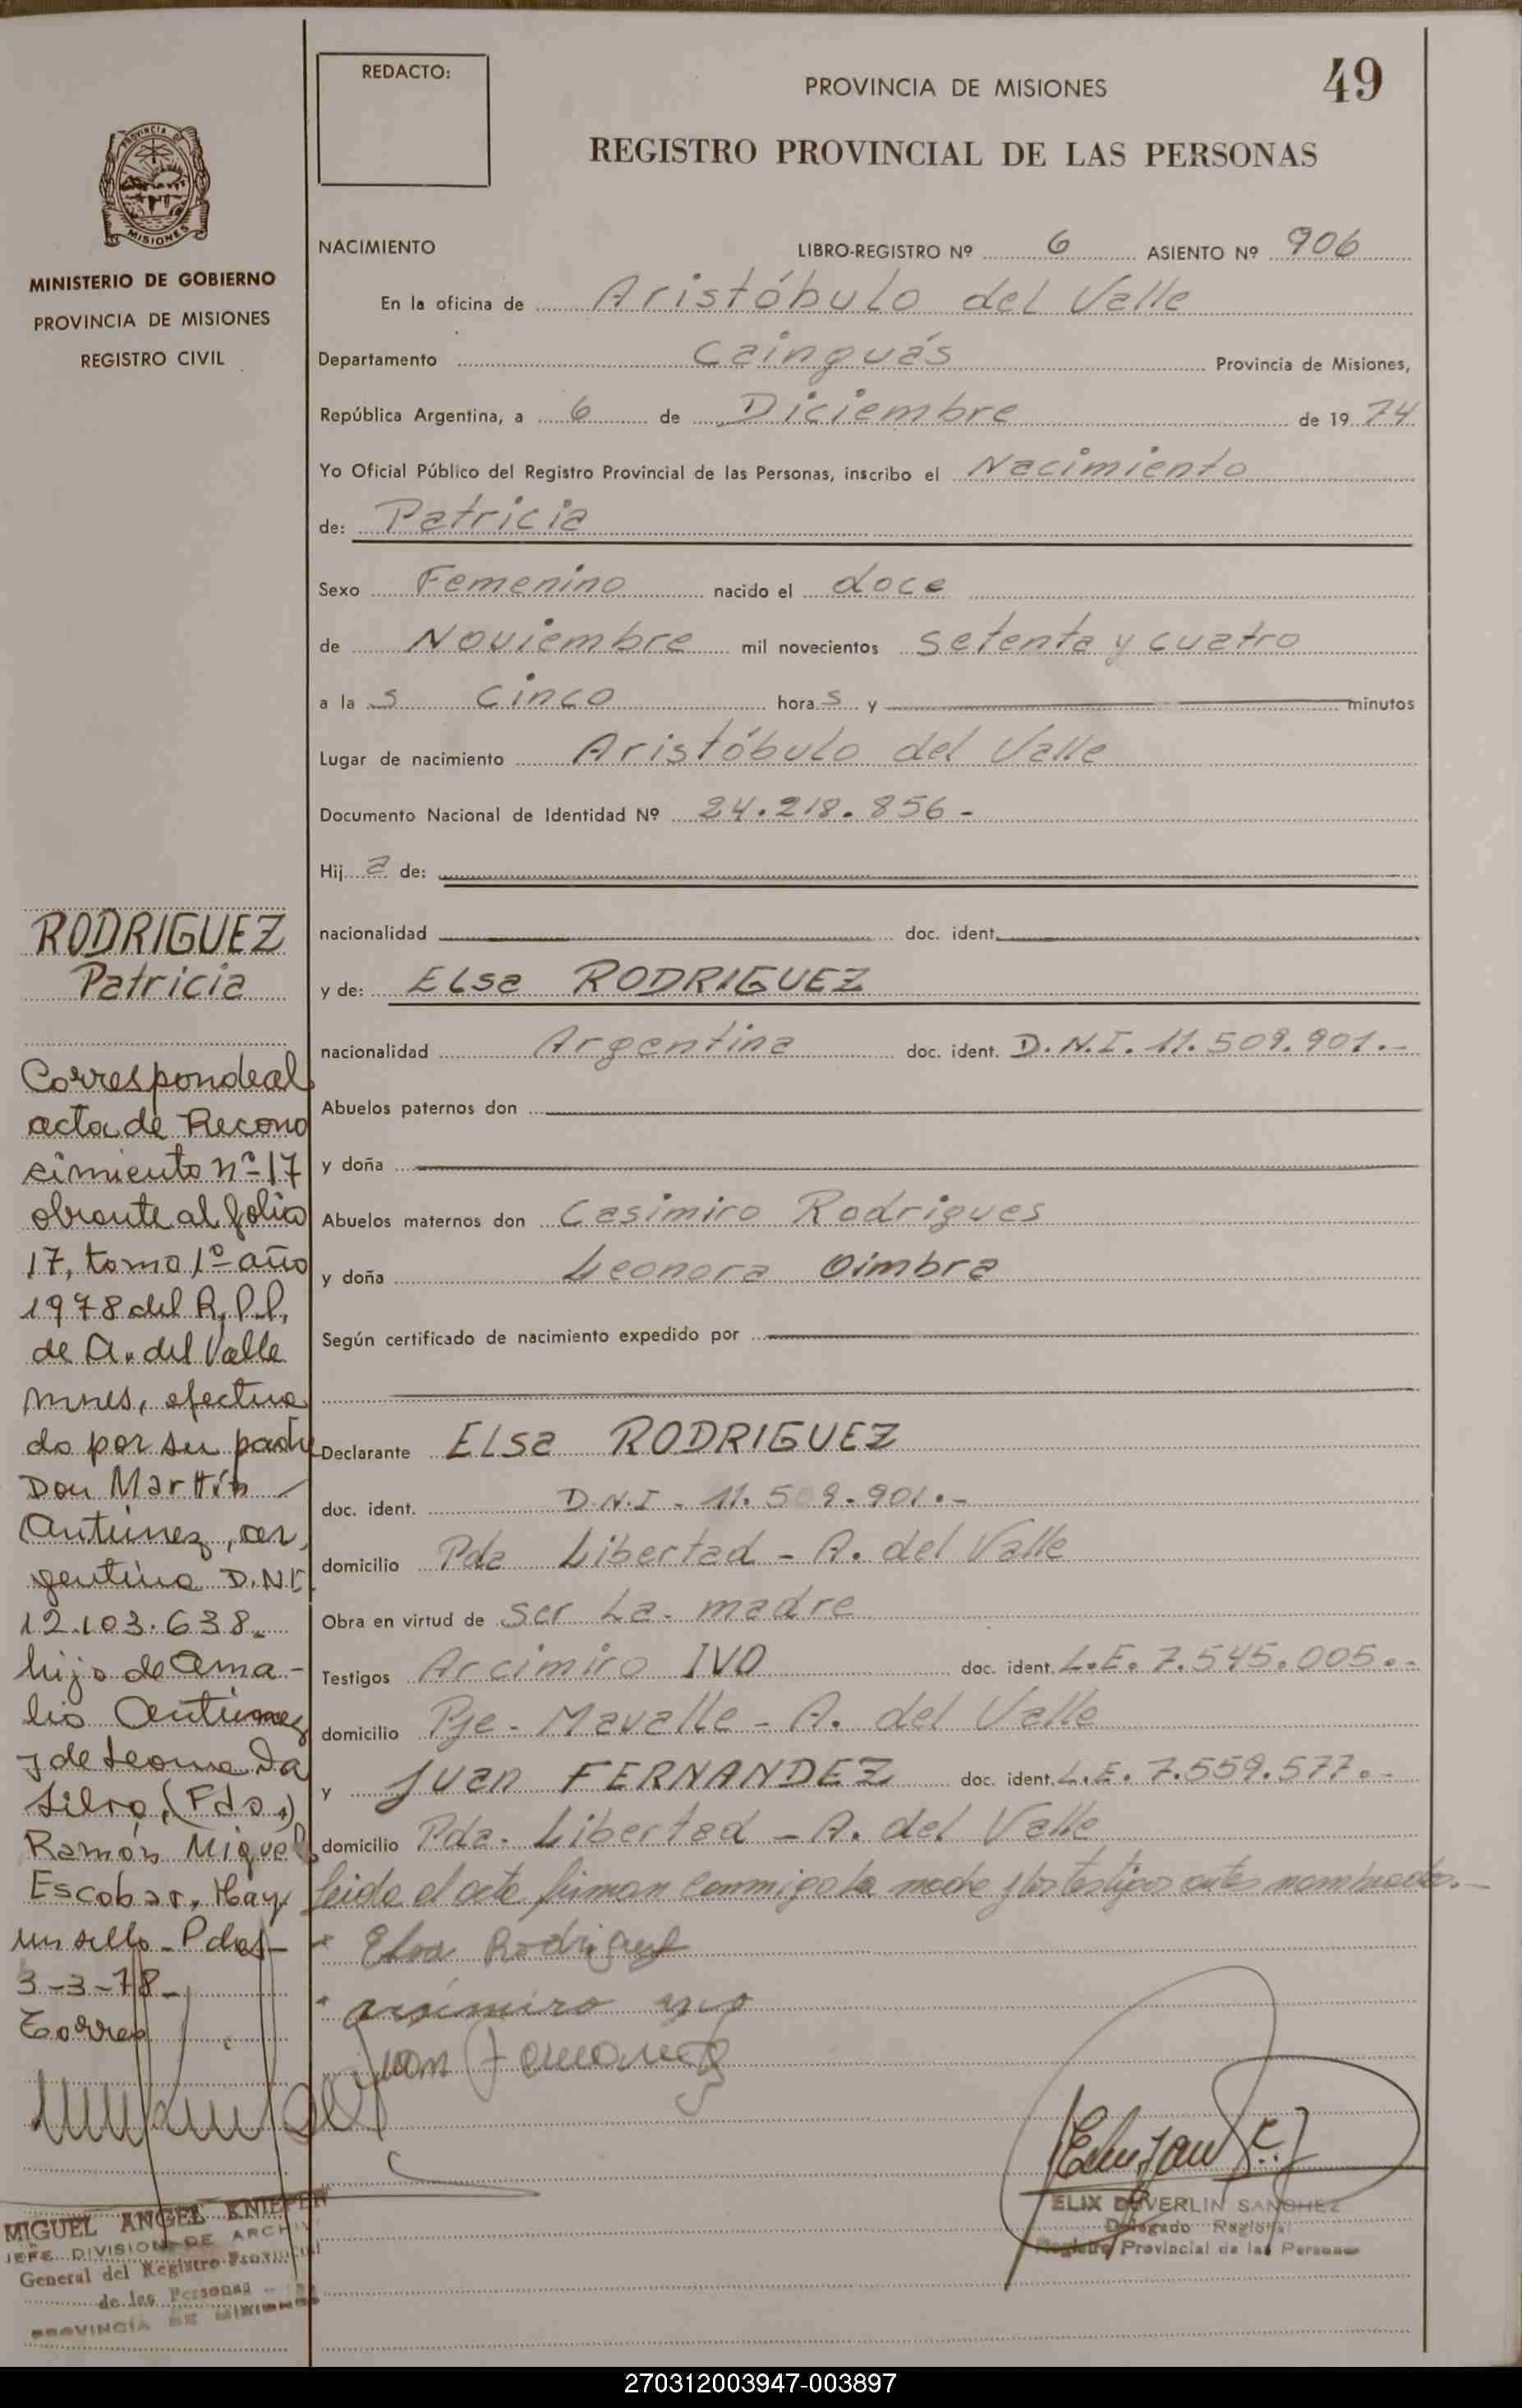 REDACTO:
PROVINCIA DE MISIONES
49
REGISTRO PROVINCIAL DE LAS PERSONAS
PROVINCIA DE
MISIONES
MINISTERIO DE GOBIERNO
PROVINCIA DE MISIONES
REGISTRO CIVIL
NACIMIENTO LIBRO-REGISTRO Nº 6 ASIENTO Nº 906
En la oficina de Aristóbulo del Valle
Departamento Cainguás Provincia de Misiones,
República Argentina, a 6 de Diciembre de 1974
Yo Oficial Público del Registro Provincial de las Personas, inscribo el Nacimiento
de: Patricia
Sexo Femenino nacido el doce
de Noviembre mil novecientos setenta y cuatro
a la s cinco hora s y minutos
Lugar de nacimiento Aristóbulo del Valle
Documento Nacional de Identidad Nº 24.218.856-
Hij a de:
nacionalidad doc. ident.
y de: Elsa RODRIGUEZ
nacionalidad Argentina doc. ident. D.N.I. 11.509.901.-
Abuelos paternos don
y doña
Abuelos maternos don Casimiro Rodrigues
y doña Leonora Oimbra
Según certificado de nacimiento expedido por
Declarante Elsa RODRIGUEZ
doc. ident. D.N.I - 11.509.901.-
domicilio Pda Libertad - A. del Valle
Obra en virtud de ser La madre
Testigos Arcimiro IVO doc. ident. L.E. 7.545.005.-
domicilio Pje - Mavalle - A. del Valle
y Juan FERNANDEZ doc. ident. L.E. 7.559.577.-
domicilio Pda. Libertad - A. del Valle
leida el acta firman conmigo la madre y los testigos antes nombrados.-
Elsa Rodriguez
arsimiro ivo
Juan Fernandez
ELIX DUVERLIN SANCHEZ
Delegado Regional
Registro Provincial de las Personas
RODRIGUEZ
Patricia
Corresponde al
acta de Recono
cimiento nº 17
obrante al folio
17, tomo 1º año
1978 del R.P.P.
de A. del Valle
Mnes, efectua
do por su padre
Don Marttín
Antunez, ar
gentino D.N.I.
12.103.638.
hijo de Ama-
lio Antunez
y de Leona Da
Silva, (Fdo.)
Ramón Miguel
Escobar. Hay
un sello - Pdas
3-3-78-
Torres
MIGUEL ANGEL KNIEPER
JEFE DIVISION DE ARCHIVO
General del Registro Provincial
de las Personas
PROVINCIA DE MISIONES
270312003947-003897